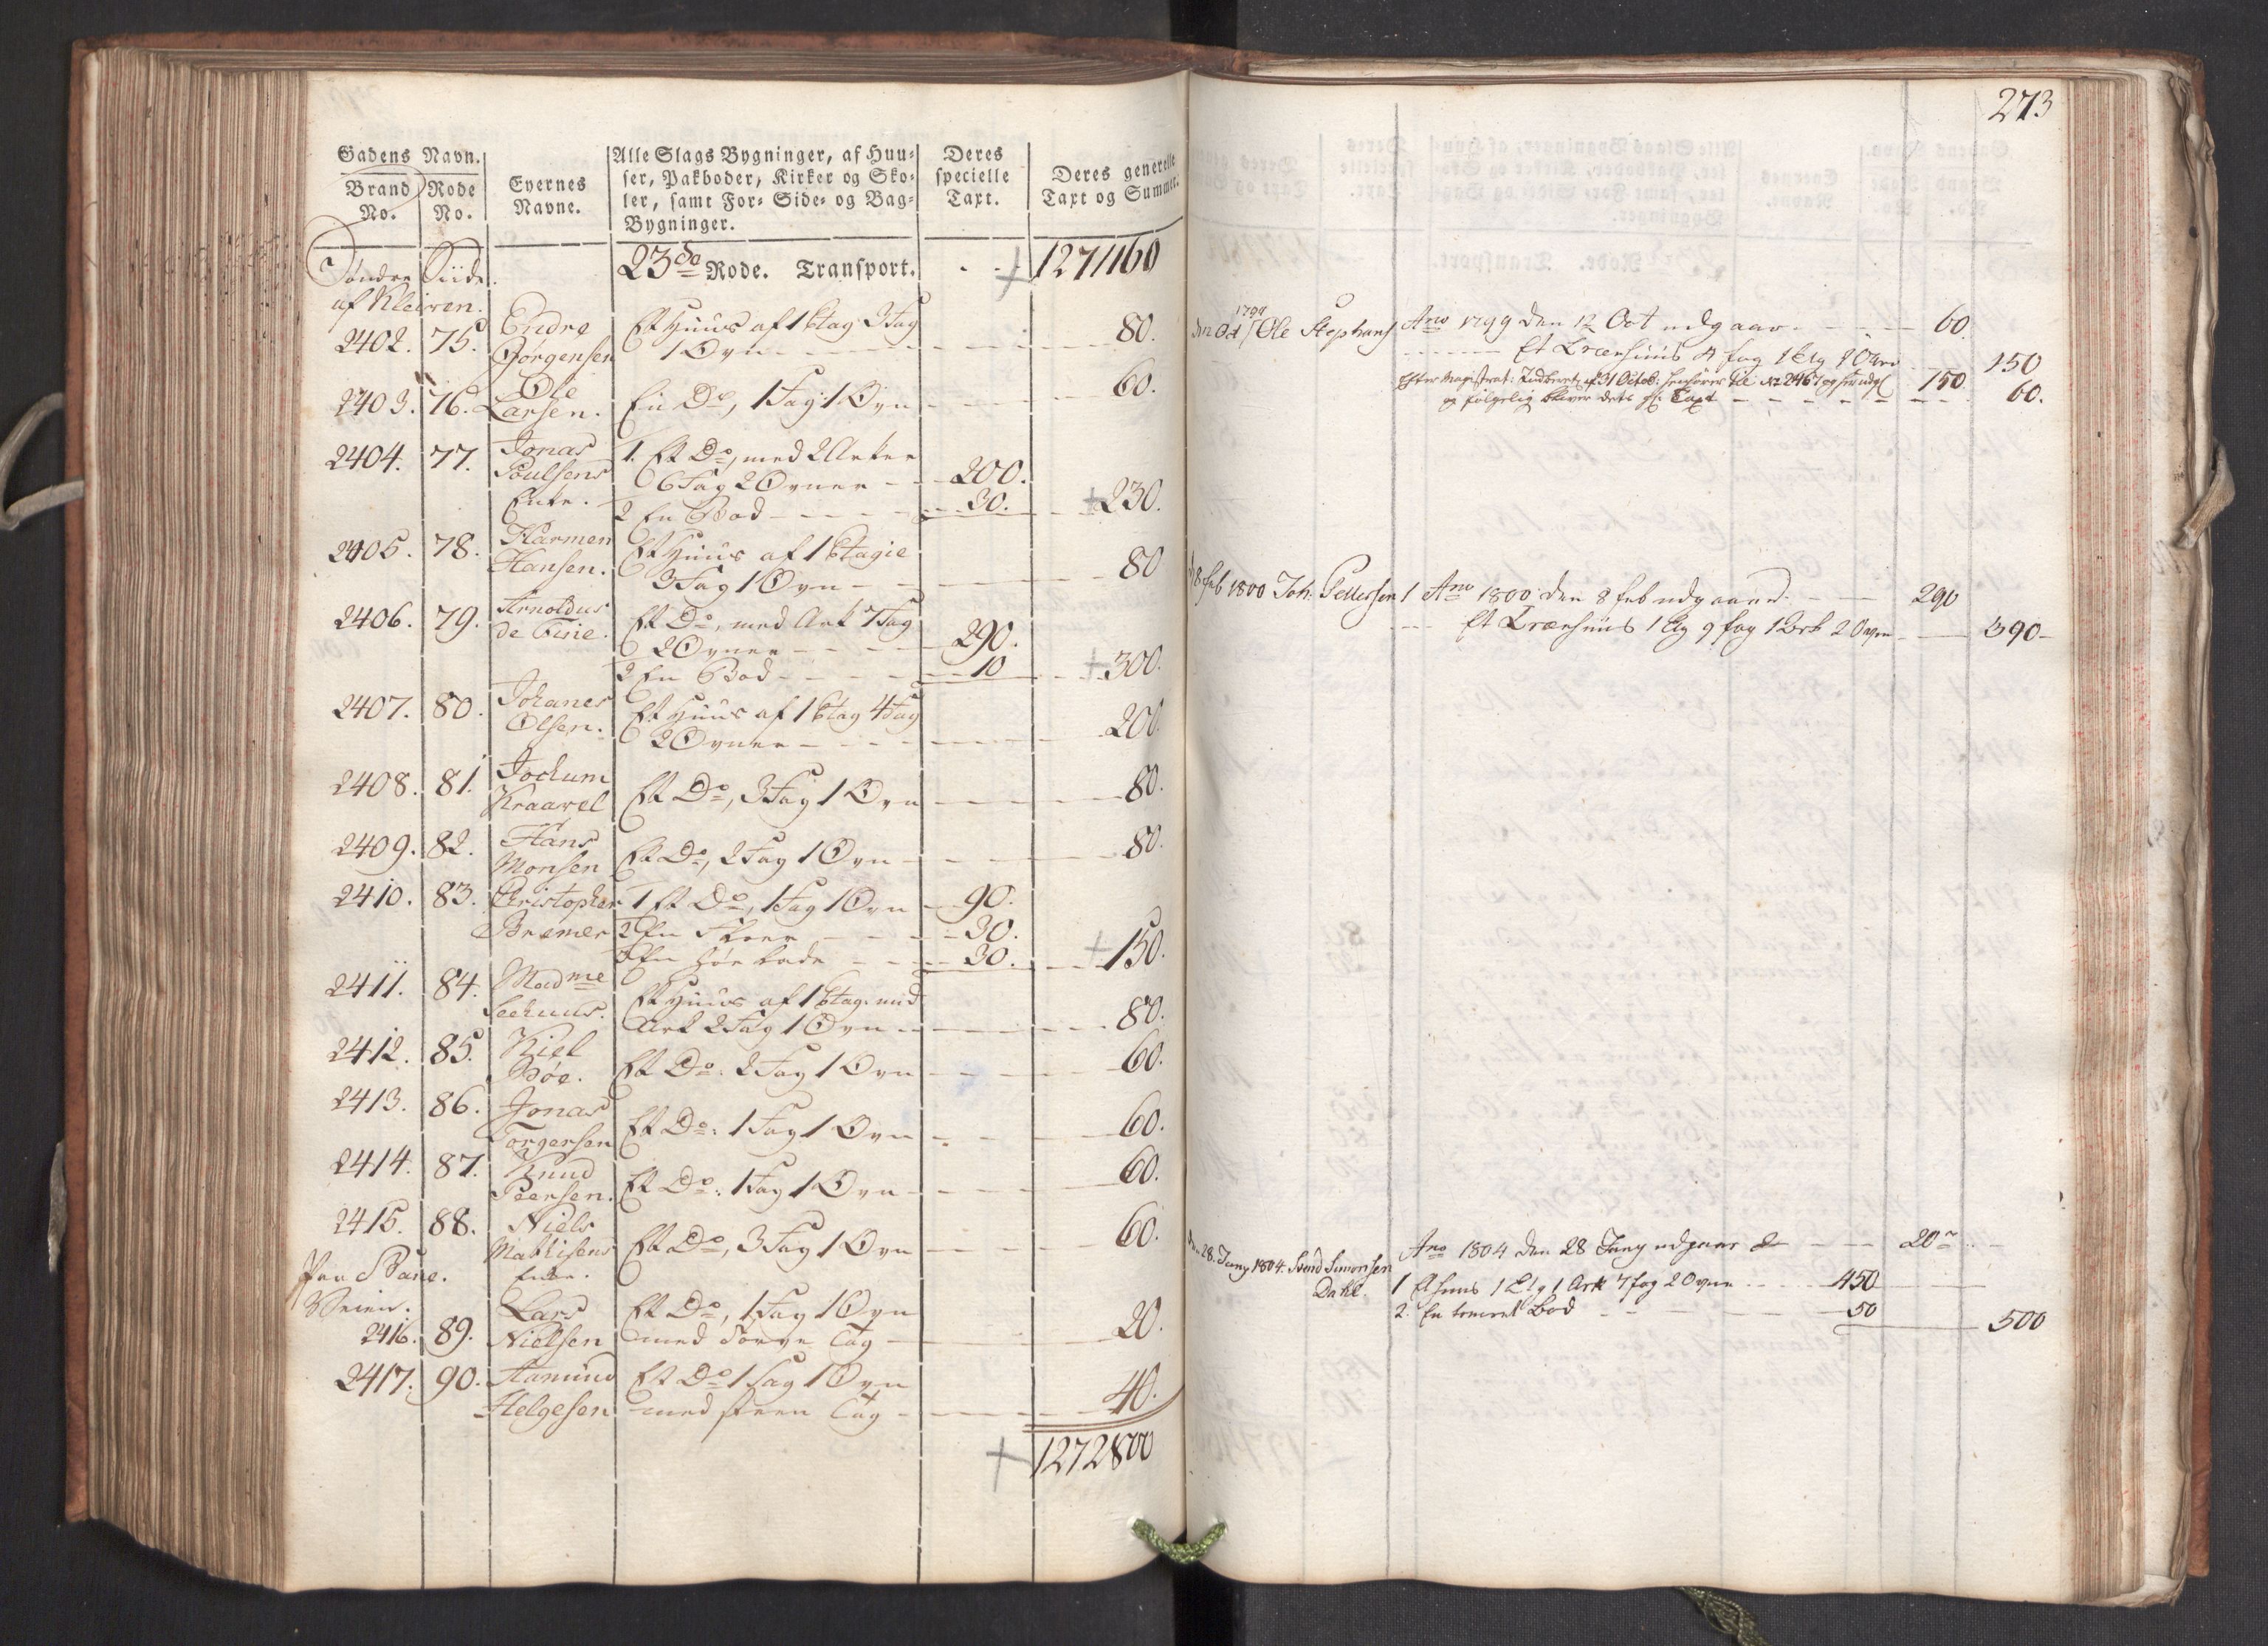 Gadens Navn.
Brand No. Rode No.
Eyernes Navne.
Alle Slags Bygninger, af Huu-
ser, Pakboder, Kirker og Sko-
ler, samt For- Side- og Bag-
Bygninger.
Deres specielle Taxt.
Deres generelle Taxt og Summer.
Søndre Siide 23de Rode. Transport. 1271160
af Kleiven.
2402. 75. Endre Et Huus af 1 Etag 3 Fag
Jörgensen 1 Ovn 80.
2403. 76. Ole
Larsen. En Do, 1 Fag 1 Ovn 60.
2404. 77. Jonas 1. Et Do, med 2 Arker
Poulsens 6 Fag 2 Ovner 200.
Enke. 2 En Bod 30. 230.
2405. 78. Harmen Et Huus af 1 Etagie
Hansen. 3 Fag 1 Ovn 80
2406. 79. Arnoldus Et Do, med Ark 7 Fag
de Fine. 2 Ovner 290.
2 En Bod 10 300.
2407. 80. Johanes Et Huus af 1 Etag 4 Fag
Olsen. 2 Ovner 200.
2408. 81. Jochum
Kraavel Et Do, 3 Fag 1 Ovn 80.
2409. 82. Hans
Monsen Et Do, 2 Fag 1 Ovn 80.
2410. 83. Christopher 1 Et Do, 1 Fag 1 Ovn 90.
Bremer 2 En 30.
3 En Höe Lade 30. 150.
2411. 84. Madme Et Huus af 1 Etag. med
Ark 2 Fag 1 Ovn 80.
2412. 85. Kiel
Böe. Et Do. 2 Fag 1 Ovn 60.
2413. 86. Jonas
Torgersen Et Do: 1 Fag 1 Ovn 60.
2414. 87. Knud
Peersen. Et Do: 1 Fag 1 Ovn 60.
2415. 88. Niels
Mathisens Et Do, 3 Fag 1 Ovn 60.
Enke.
Paa Bane.
Veien. Lars Et Do, 1 Fag 1 Ovn
2416. 89. Nielsen med Torve Tag 20.
2417. 90. Aamund Et Do 1 Fag 1 Ovn
Helgesen med steen Tag 40.
1272800
273
1799
Ole Stephans Ano 1799 den 12 Oct udgaar 60.
Et Træehuus 4 fag 1 Etg 1 Ovn 150
Efter Magistrat: af 31 Octob: henhörer til No 2467 150.
og fölgelig bliver dets Taxt 60.
8 feb 1800 Joh: Pettersen 1 Ano 1800 den 8 feb udgaaed. 290
Et Træehuus 1 Etg 9 fag 1 Ark 2 Ovn 390
den 28. Juny 1804. Svend Simonsen Ano 1804 den 28 Juny udgaar 20
Dahl. 1 Et huus 1 Etg 1 Ark 7 fag 2 Ovne 450
2. En Bod 50 500